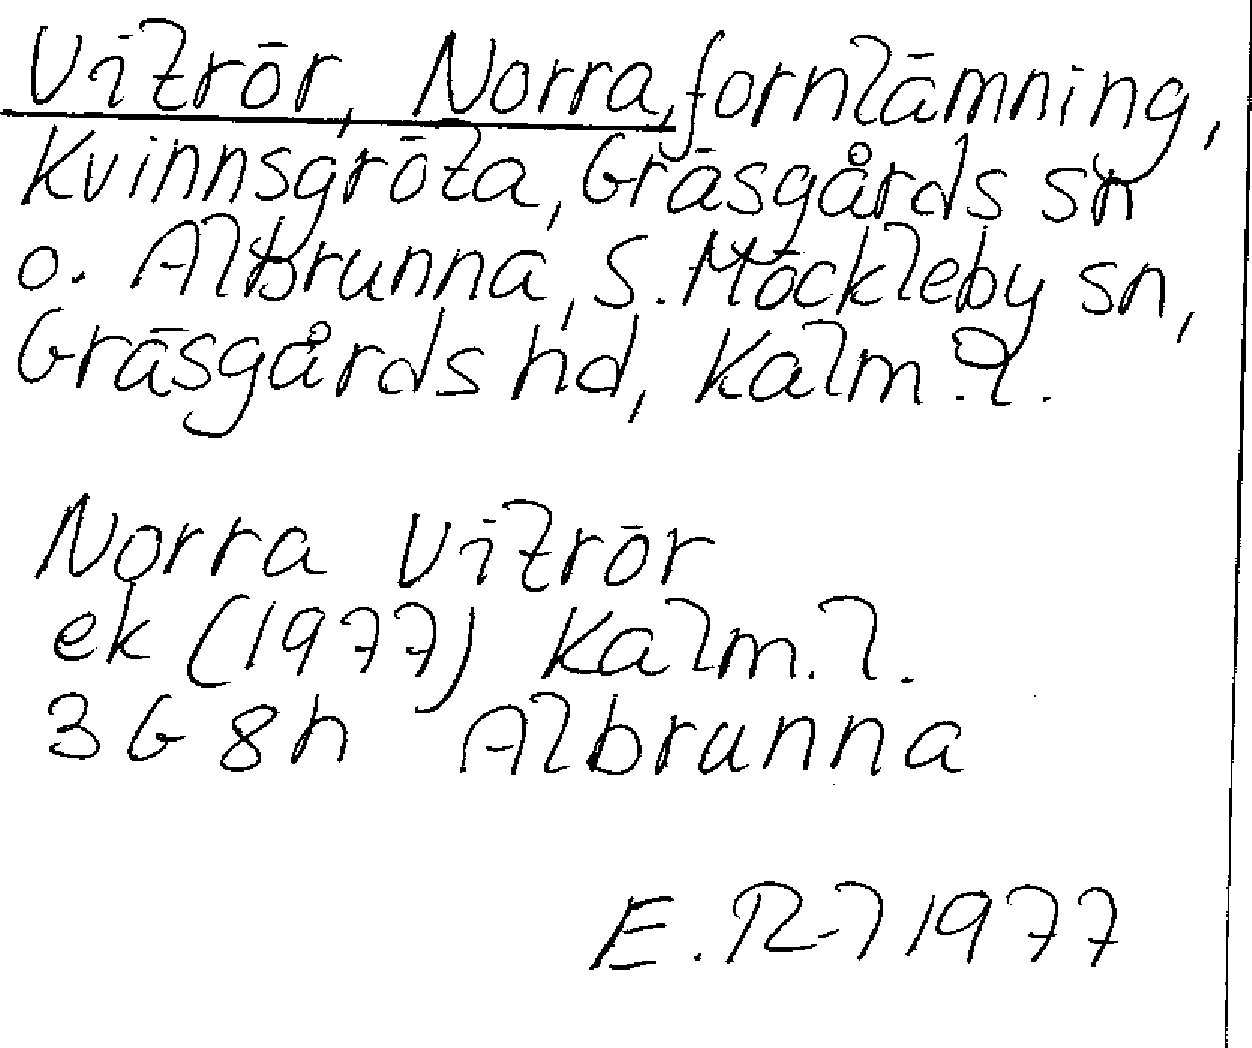 Vitrör, Norra, fornlämning,
Kvinnsgröta, Gräsgårds sn
o. Albrunna, S. Möckleby sn,
Gräsgårds hd, Kalm. l.
Norra Vitrör
ek (1977) Kalm. l.
3G 8h Albrunna
1977